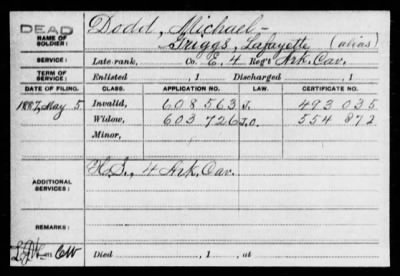 DEAD
Dodd, Michael –
NAME OF SOLDIER:
Griggs, Lafayette (alias)
SERVICE:
Late rank, Co. E, 4 Reg't Ark. Cav.
TERM OF SERVICE:
Enlisted , 1 Discharged , 1
DATE OF FILING. CLASS. APPLICATION NO. LAW. CERTIFICATE NO.
1887, May 5 Invalid, 608 563 J. 493 035
Widow, 603 726 J.O. 554 872
Minor,
ADDITIONAL SERVICES:
H.S., 4 Ark. Cav.
REMARKS:
Died , 1 , at